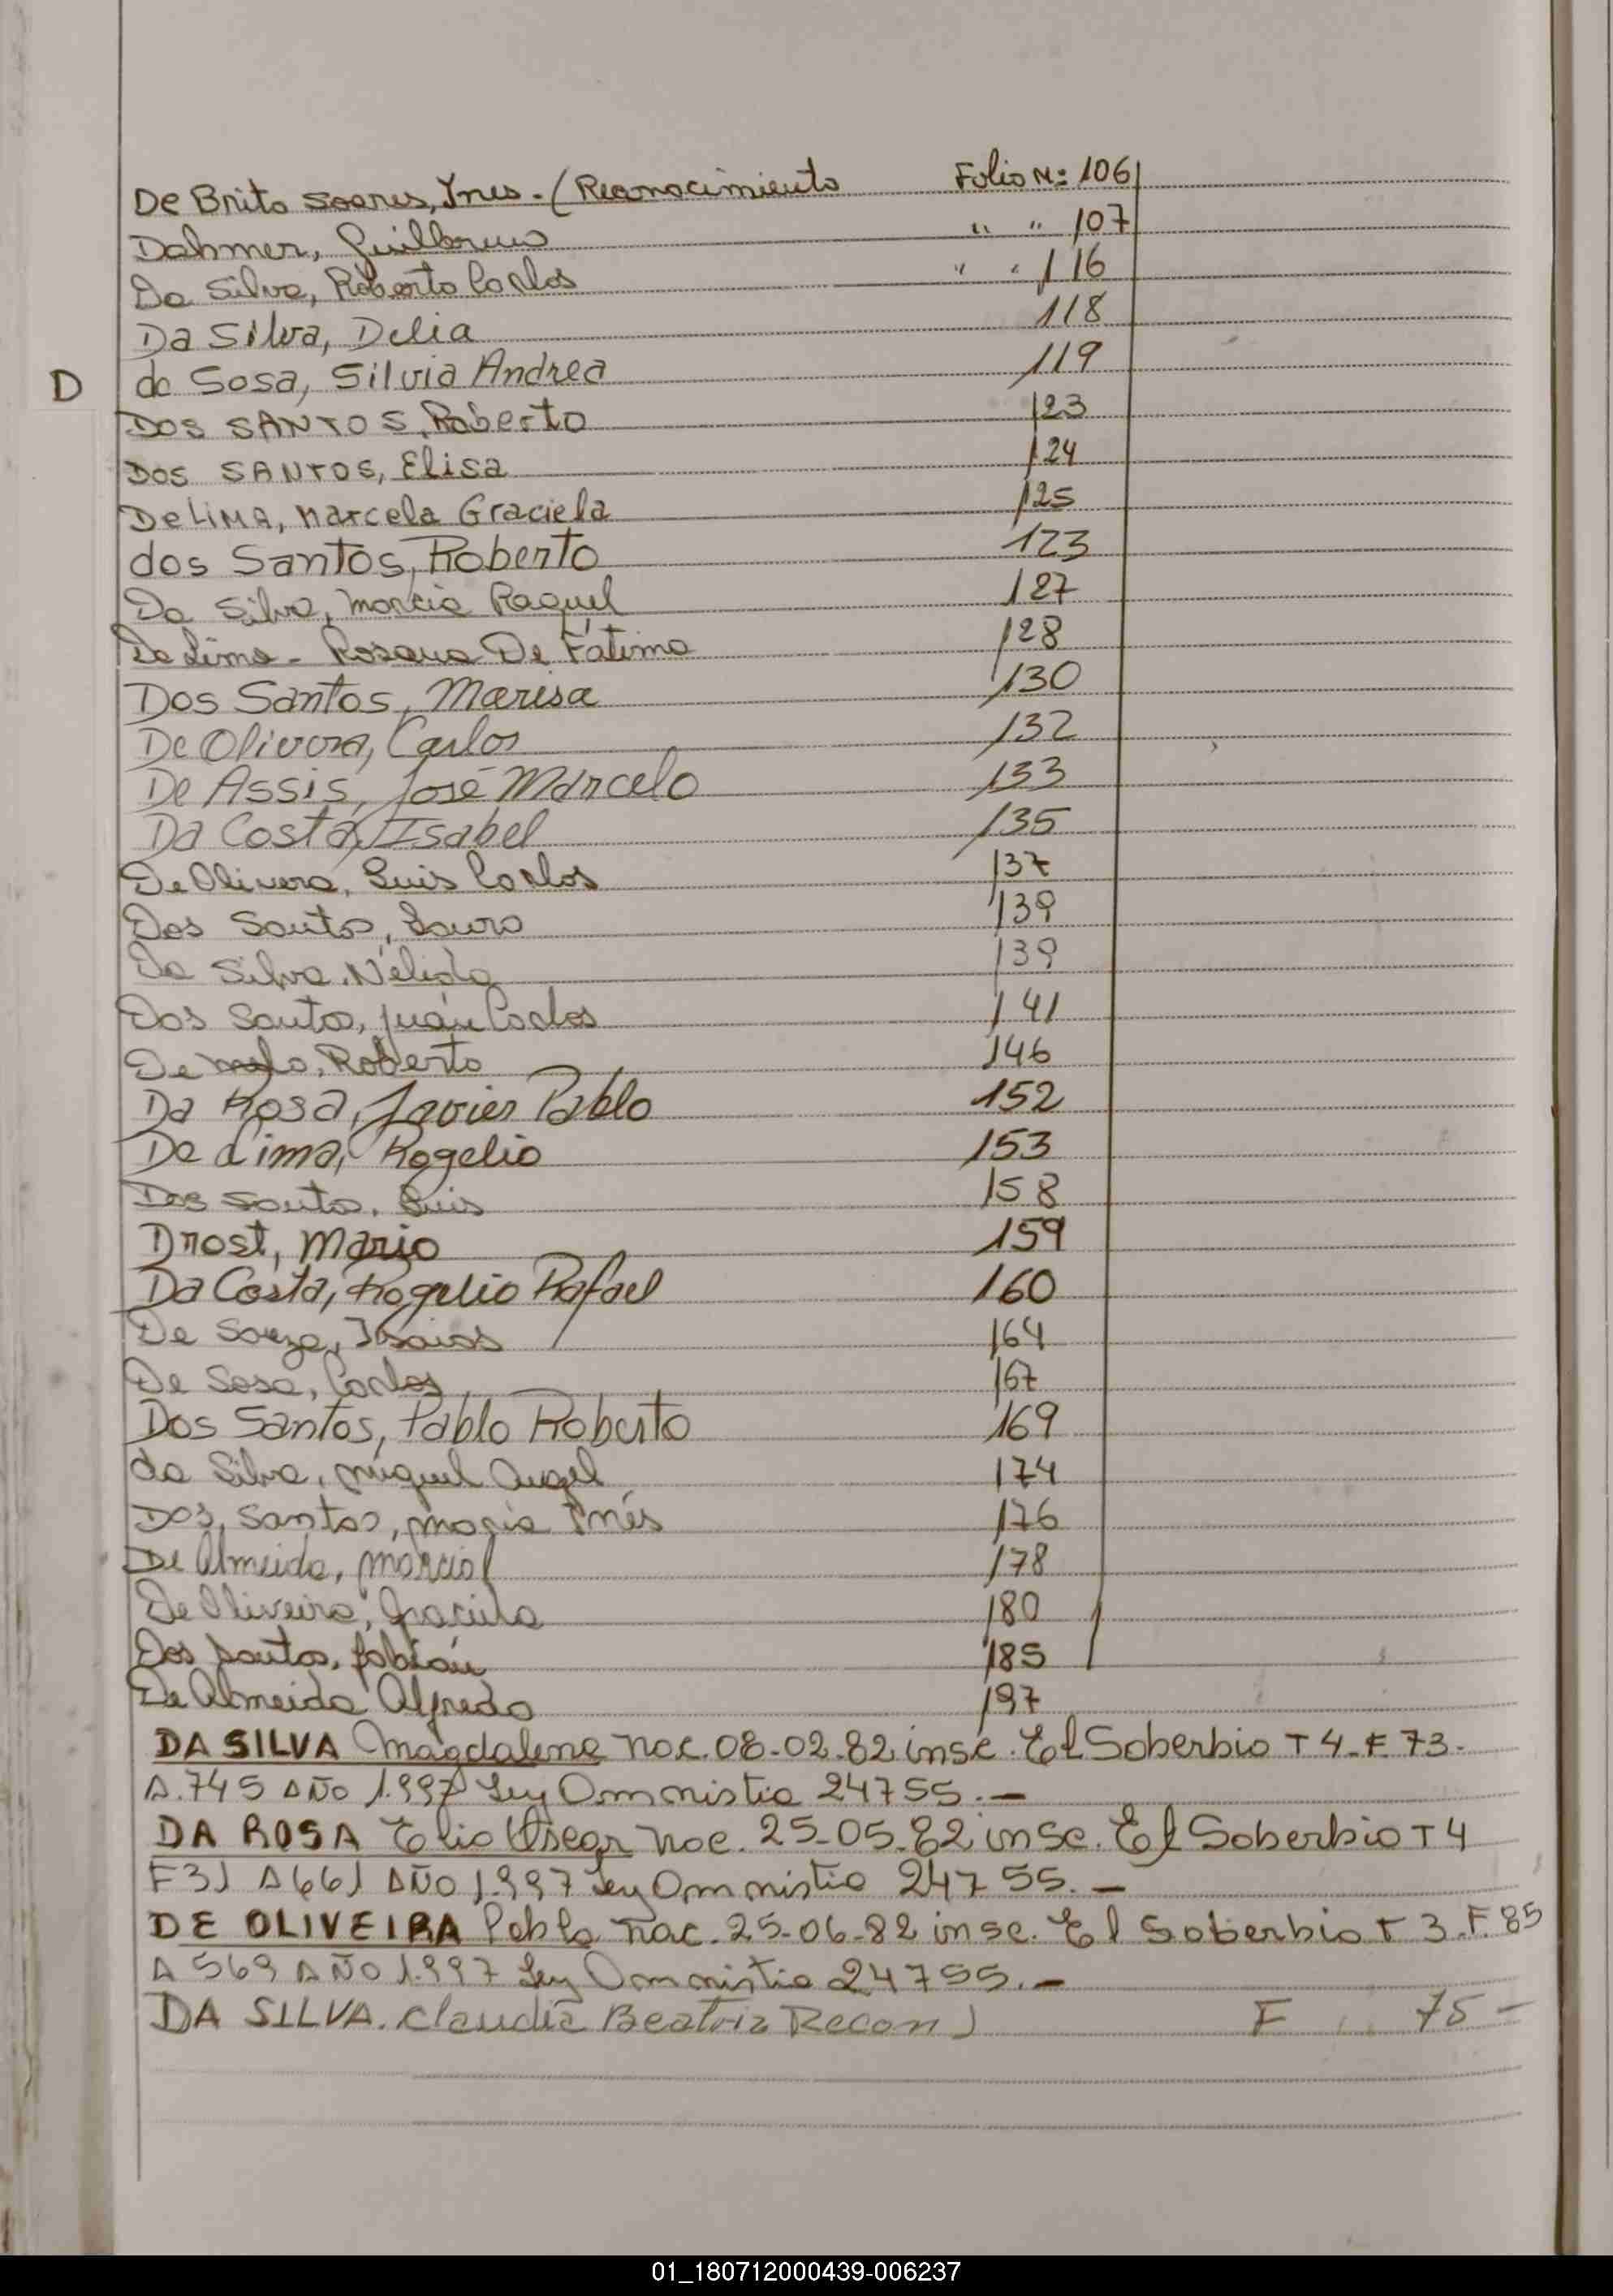 De Brito Soares, Ynes. - (Reconocimiento Folio Nº: 106
Dahmer, Guillermo " " 107
Da Silva, Roberto Carlos " " 116
Da Silva, Delia 118
D de Sosa, Silvia Andrea 119
DOS SANTOS, Roberto 123
DOS SANTOS, Elisa 124
De LIMA, Marcela Graciela 125
dos Santos, Roberto 123
Da Silva, Marcia Raquel 127
De Lima - Rosana De Fátima 128
Dos Santos, Marisa 130
De Olivera, Carlos 132
De Assis, José Marcelo 133
Da Costa, Isabel 135
De Olivera, Luis Carlos 137
Dos Santos, Lauro 139
Da Silva, Nélida 139
Dos Santos, Juan Carlos 141
De Melo, Roberto 146
Da Rosa, Javier Pablo 152
De Lima, Rogelio 153
Dos Santos, Luis 158
Drost, Mario 159
Da Costa, Rogelio Rafael 160
De Souza, Isaias 164
De Sosa, Carlos 167
Dos Santos, Pablo Roberto 169
da Silva, Miguel Angel 174
Dos Santos, Maria Inés 176
De Almeida, Marcial 178
De Oliveira, Graciela 180
Dos Santos, Fabián 185
De Almeida Alfredo 197
DA SILVA Magdalena nac. 08-02-82 insc. El Soberbio T 4-F 73-
A.745 AÑO 1.997 Ley Ammistia 24755.-
DA ROSA Elio Oscar nac. 25-05-82 insc. El Soberbio T 4
F31 A661 AÑO 1.997 Ley Ammistia 24755.-
DE OLIVEIRA Pablo nac. 25-06-82 insc. El Soberbio T 3-F.85
A 569 AÑO 1.997 Ley Ammistia 24755.-
DA SILVA. Claudia Beatriz Recon) F 75-
01_180712000439-006237